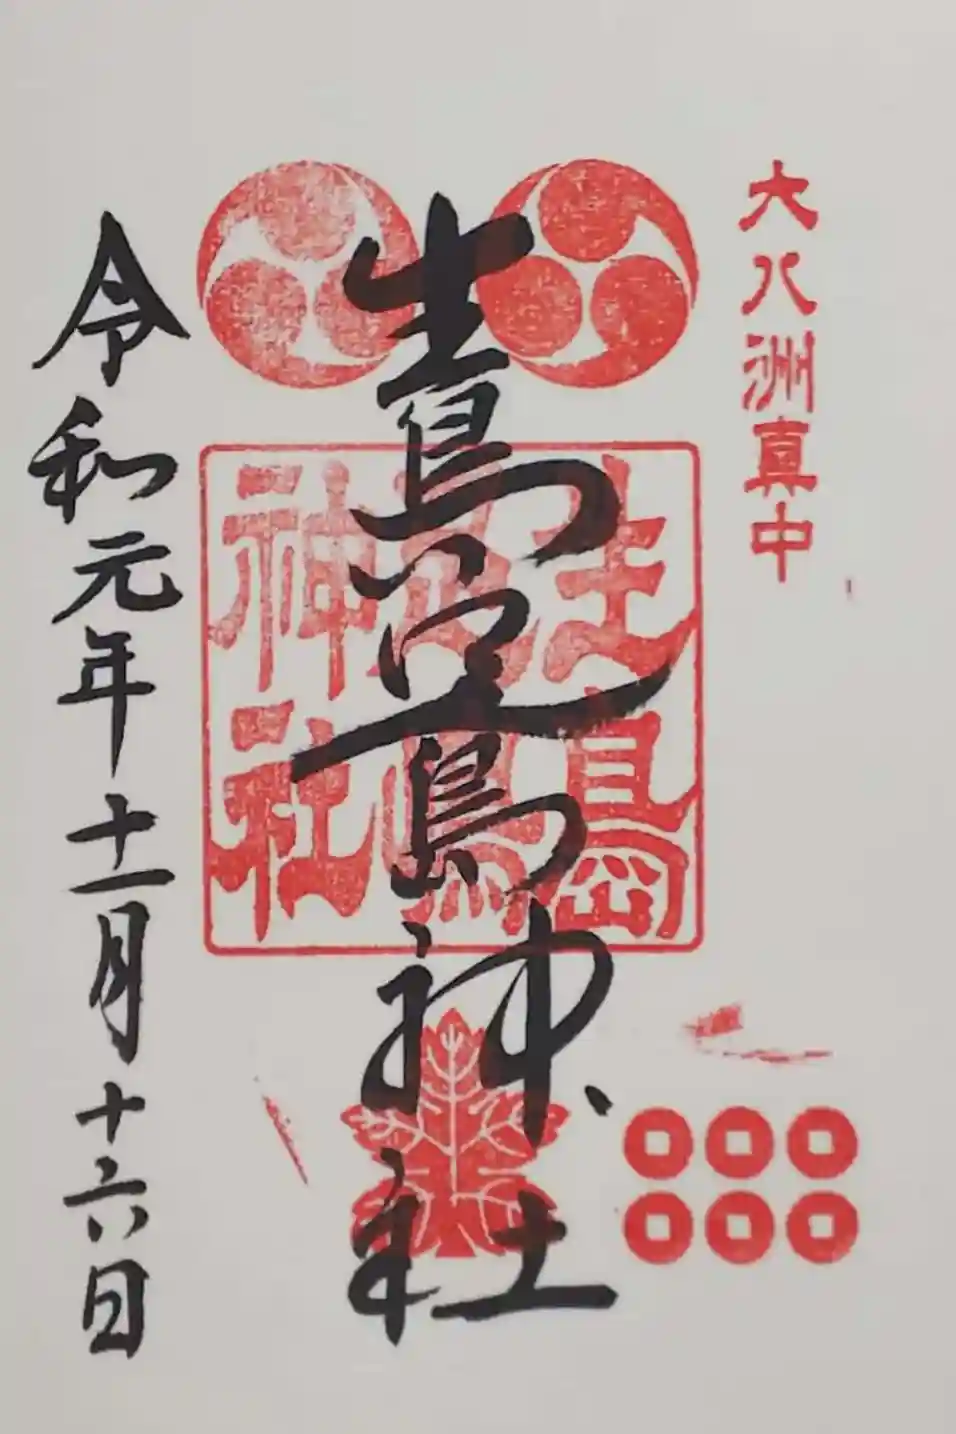 大八洲真中
生島足島神社
生島足島神社
令和元年十一月十六日